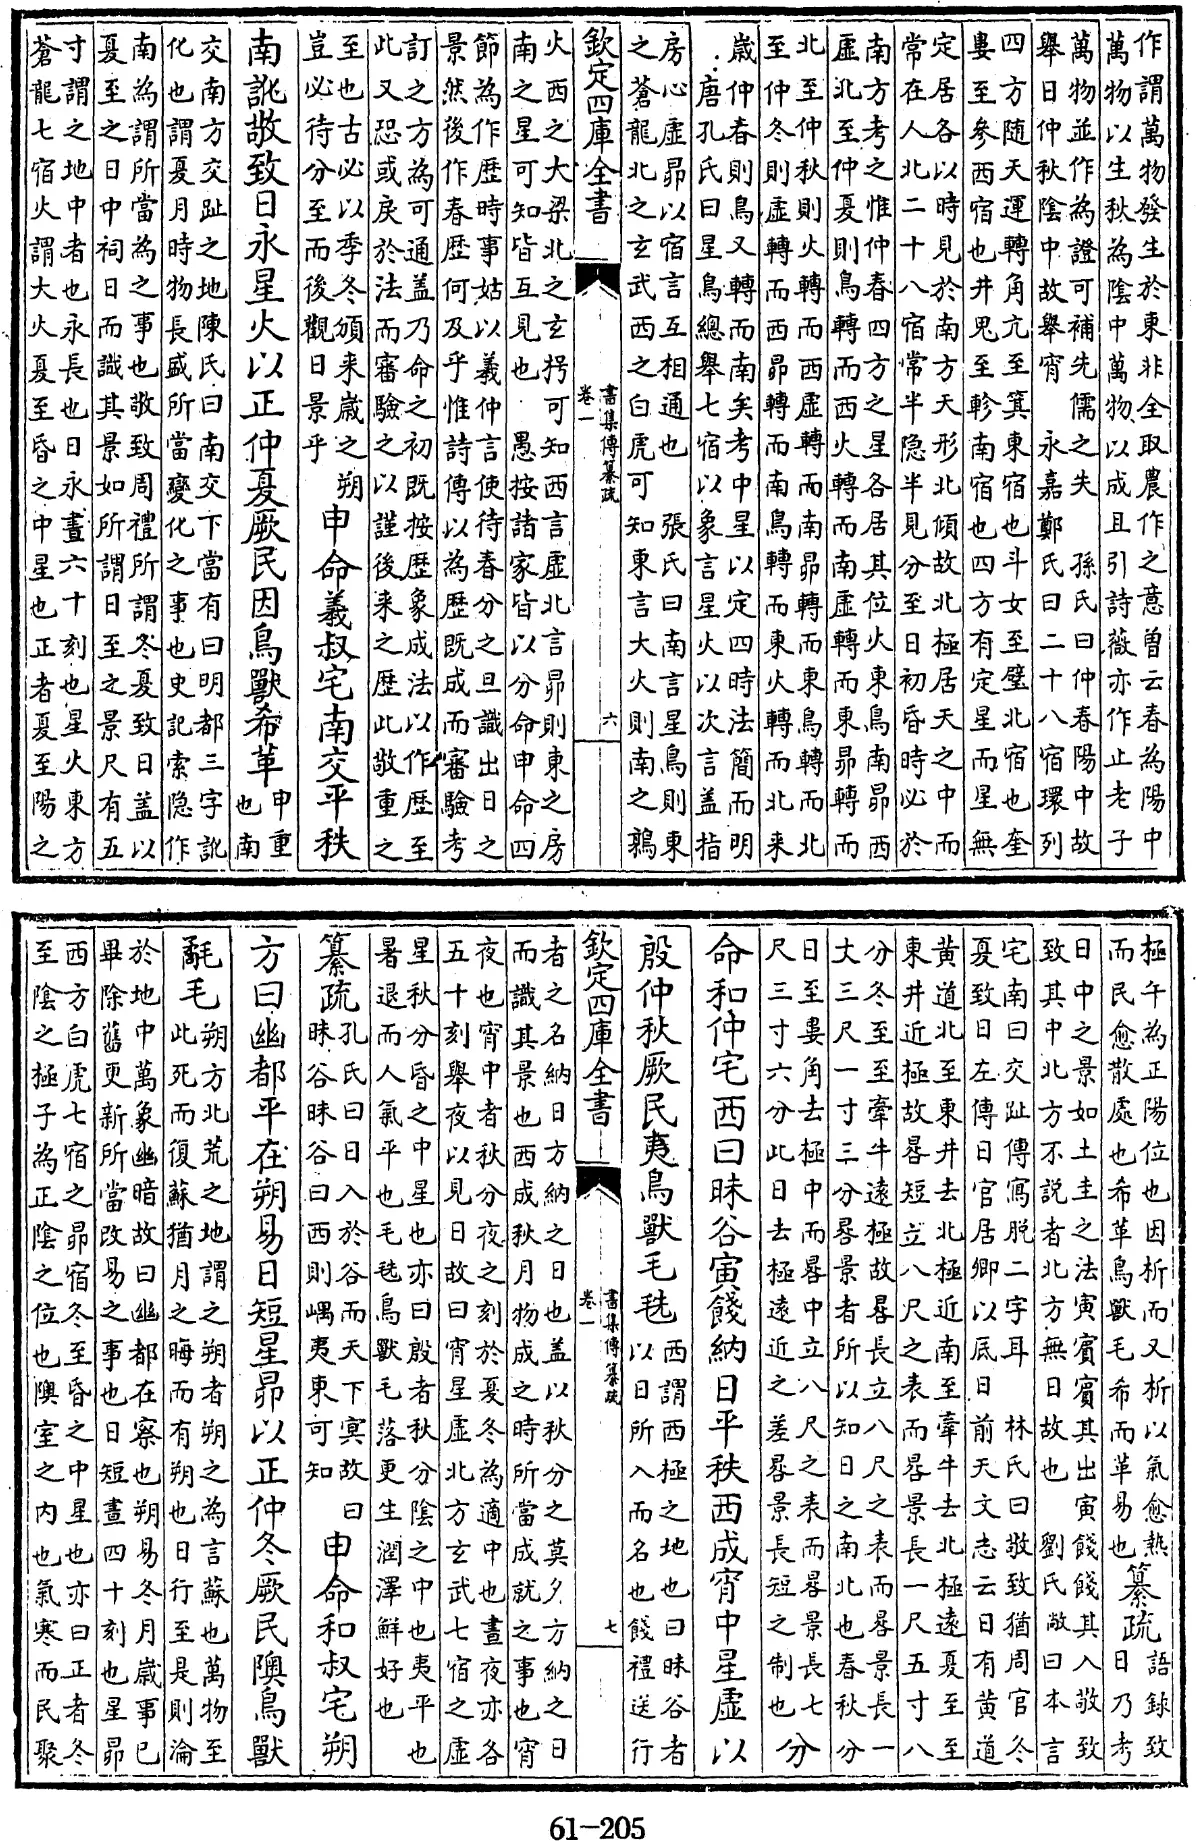 作謂萬物發生於東非全取農作之意曾云春為陽中
萬物以生秋為陰中萬物以成且引詩薇亦作止老子
萬物並作為證可補先儒之失 孫氏曰仲春陽中故
舉日仲秋陰中故舉宵 永嘉鄭氏曰二十八宿環列
四方随天運轉角亢至箕東宿也斗女至璧北宿也奎
婁至參西宿也井鬼至軫南宿也四方有定星而星無
定居各以時見於南方天形北傾故北極居天之中而
常在人北二十八宿常半隐半見分至日初昏時必於
南方考之惟仲春四方之星各居其位火東鳥南昴西
虛北至仲夏則鳥轉而西火轉而南虛轉而東昴轉而
北至仲秋則火轉而西虛轉而南昴轉而東鳥轉而北
至仲冬則虛轉而西昴轉而南鳥轉而東火轉而北来
歳仲春則鳥又轉而南矣考中星以定四時法簡而明
唐孔氏曰星鳥總舉七宿以象言星火以次言盖指
房心虛昴以宿言互相通也 張氏曰南言星鳥則東
之蒼龍北之玄武西之白虎可知東言大火則南之鶉
欽定四庫全書
書集傳纂疏
卷一
六
火西之大梁北之玄枵可知西言虛北言昴則東之房
南之星可知皆互見也 愚按諸家皆以分命申命四
節為作歷時事姑以義仲言使待春分之旦識出日之
景然後作春歷何及乎惟詩傳以為歷既成而審驗考
訂之方為可通盖乃命之初既按歷象成法以作歷至
此又恐或戾於法而審驗之以謹後来之歷此敬重之
至也古必以季冬頒来歳之朔
豈必待分至而後觀日景乎
申命義叔宅南交平秩
南訛敬致日永星火以正仲夏厥民因鳥獸希革
申重
也南
交南方交趾之地陳氏曰南交下當有曰明都三字訛
化也謂夏月時物長盛所當變化之事也史記索隐作
南為謂所當為之事也敬致周禮所謂冬夏致日盖以
夏至之日中祠日而識其景如所謂日至之景尺有五
寸謂之地中者也永長也日永晝六十刻也星火東方
蒼龍七宿火謂大火夏至昏之中星也正者夏至陽之
極午為正陽位也因析而又析以氣愈熱
而民愈散處也希革鳥獸毛希而革易也
纂疏
語録致
日乃考
日中之景如土圭之法寅賓賓其出寅餞餞其入敬致
致其中北方不説者北方無日故也 劉氏敞曰本言
宅南曰交趾傳寫脱二字耳 林氏曰敬致猶周官冬
夏致日左傳日官居卿以厎日 前天文志云日有黄道
黄道北至東井去北極近南至牽牛去北極遠夏至至
東井近極故晷短立八尺之表而晷景長一尺五寸八
分冬至至牽牛遠極故晷長立八尺之表而晷景長一
丈三尺一寸三分晷景者所以知日之南北也春秋分
日至婁角去極中而晷中立八尺之表而晷景長七
尺三寸六分此日去極遠近之差晷景長短之制也
分
命和仲宅西曰昧谷寅餞納日平秩西成宵中星虛以
殷仲秋厥民夷鳥獸毛毨
西謂西極之地也曰昧谷者
以日所入而名也餞禮送行
欽定四庫全書
書集傳纂疏
卷一
七
者之名納日方納之日也盖以秋分之莫夕方納之日
而識其景也西成秋月物成之時所當成就之事也宵
夜也宵中者秋分夜之刻於夏冬為適中也晝夜亦各
五十刻舉夜以見日故曰宵星虛北方玄武七宿之虛
星秋分昏之中星也亦曰殷者秋分陰之中也夷平也
暑退而人氣平也毛毨鳥獸毛落更生潤澤鮮好也
纂疏
孔氏曰日入於谷而天下㝠故曰
昧谷昧谷曰西則嵎夷東可知
申命和叔宅朔
方曰幽都平在朔易日短星昴以正仲冬厥民隩鳥獸
氄毛
朔方北荒之地謂之朔者朔之為言蘇也萬物至
此死而復蘇猶月之晦而有朔也日行至是則淪
於地中萬象幽暗故曰幽都在察也朔易冬月歳事已
畢除舊更新所當改易之事也日短晝四十刻也星昴
西方白虎七宿之昴宿冬至昏之中星也亦曰正者冬
至陰之極子為正陰之位也隩室之内也氣寒而民聚
61-205